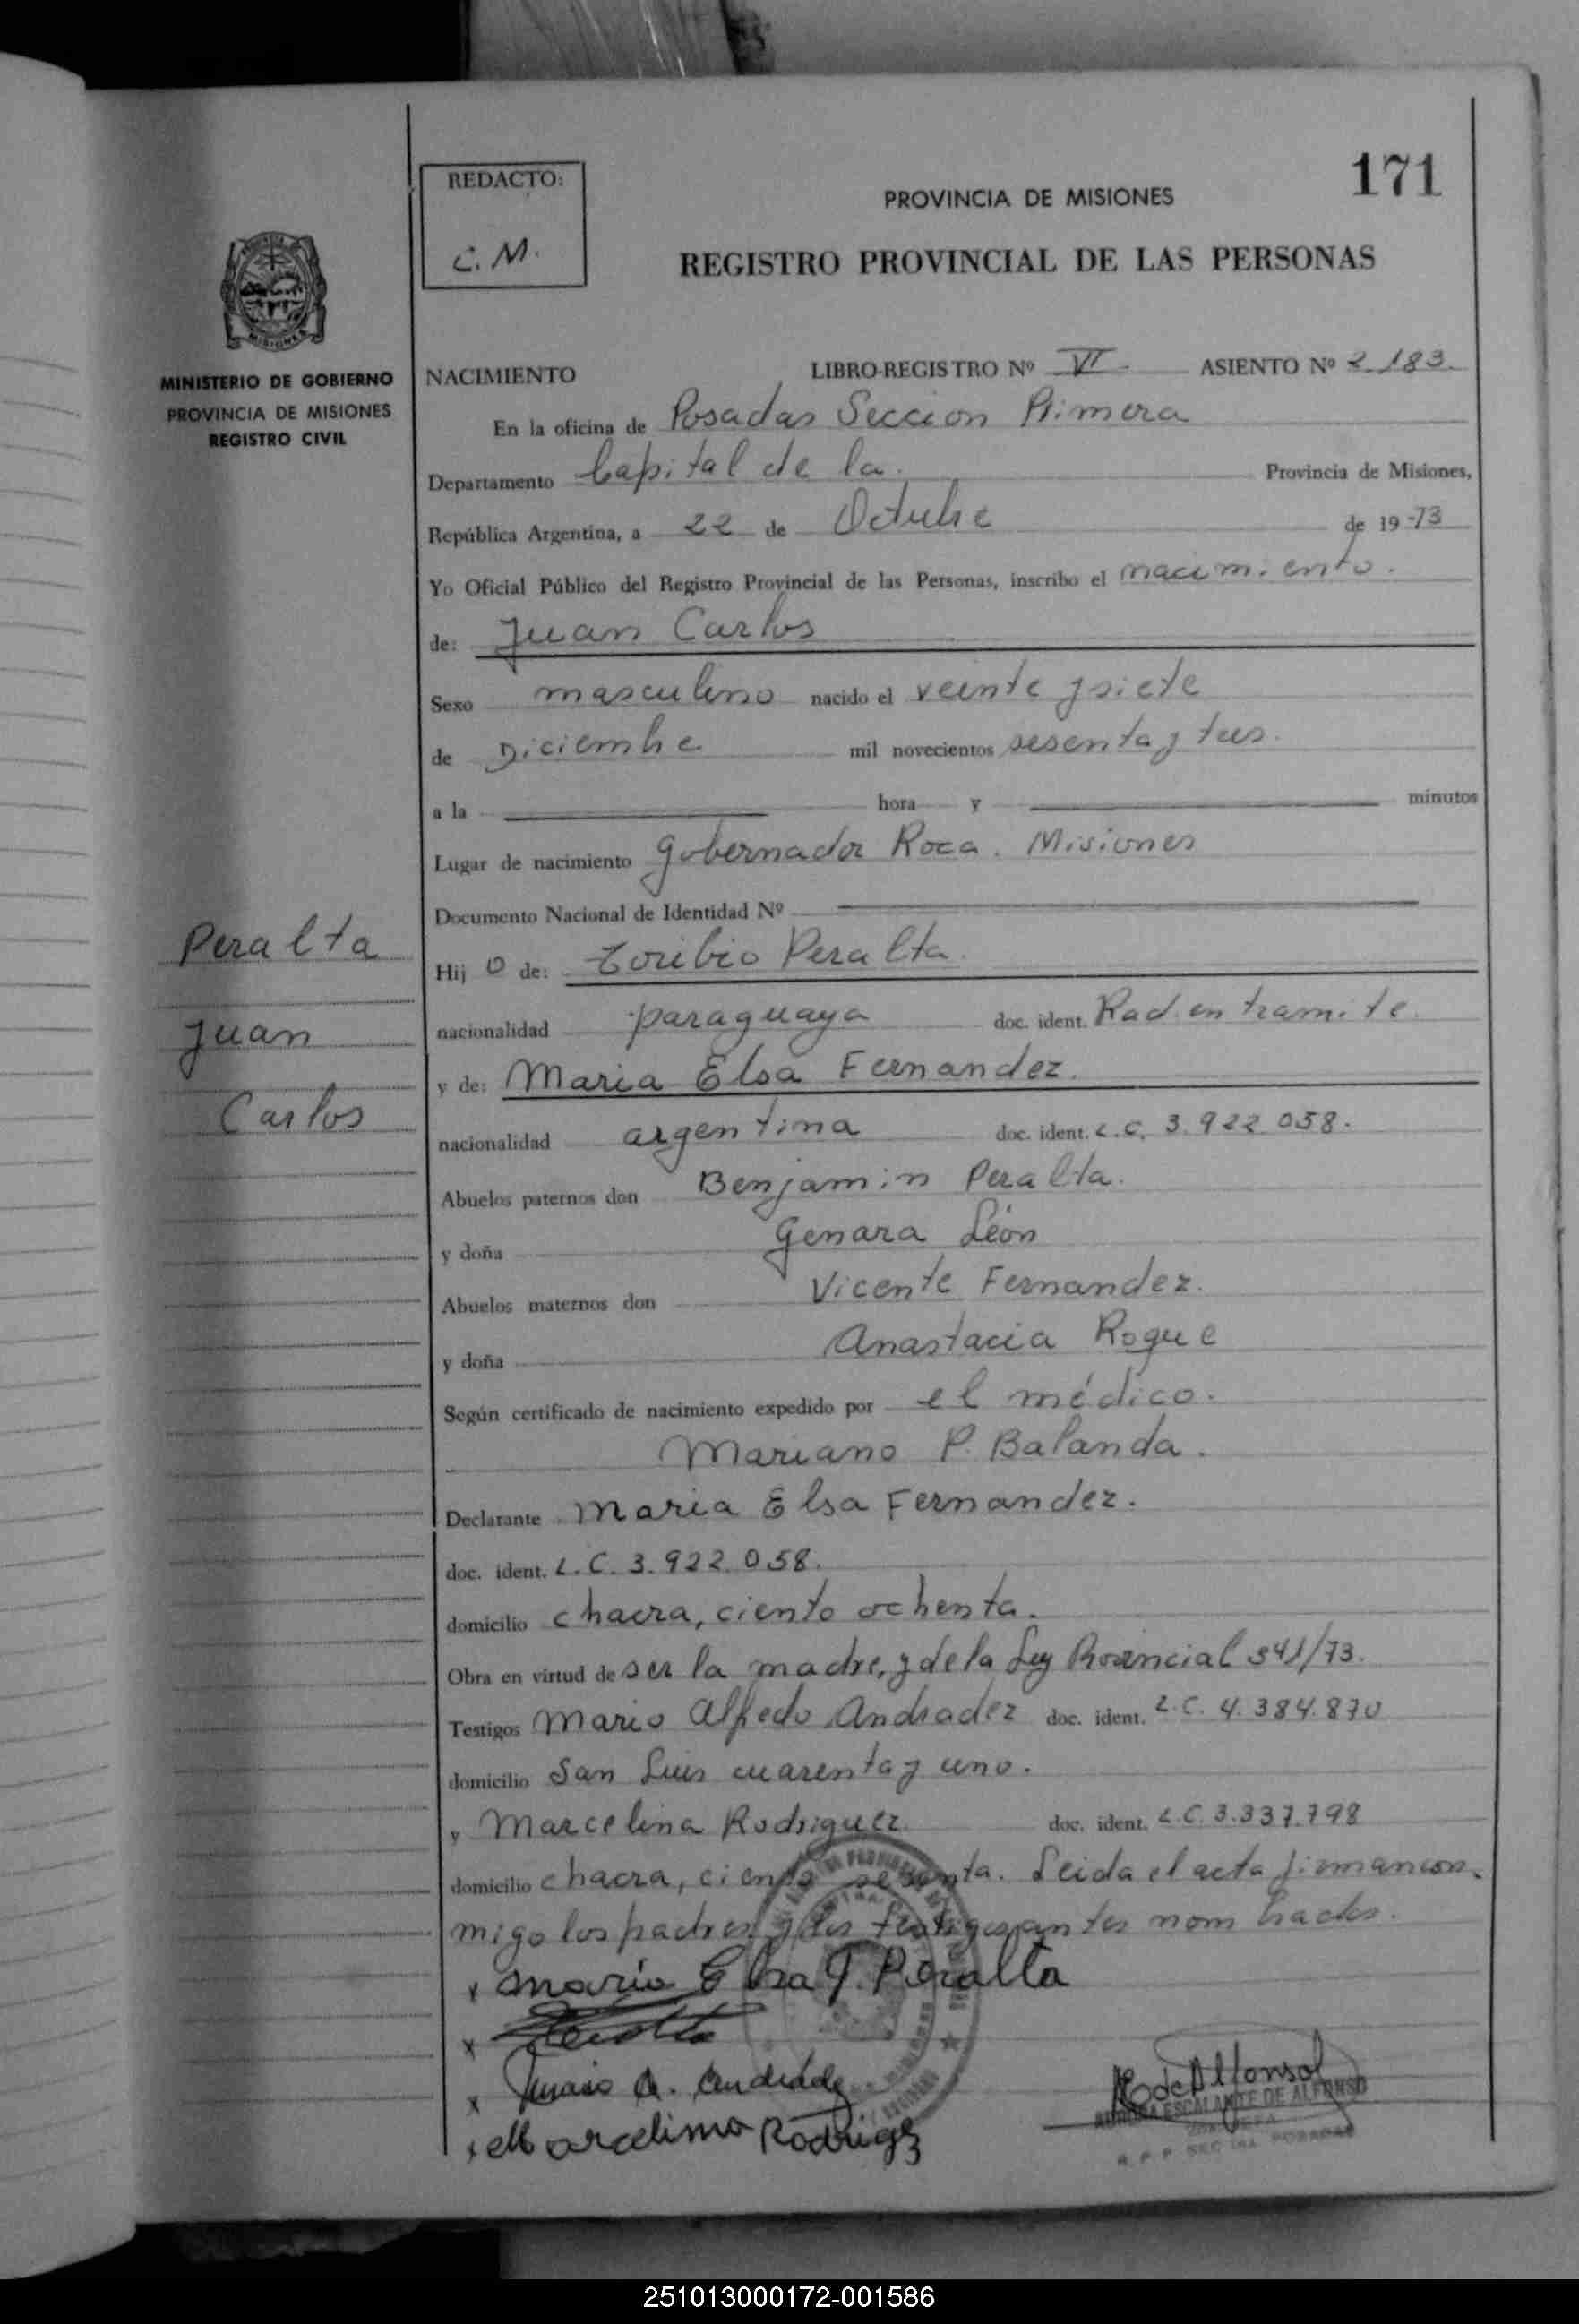 171
REDACTO:
C. M.
PROVINCIA DE MISIONES
REGISTRO PROVINCIAL DE LAS PERSONAS
MINISTERIO DE GOBIERNO
PROVINCIA DE MISIONES
REGISTRO CIVIL
NACIMIENTO LIBRO-REGISTRO Nº VI ASIENTO Nº 2.183.
En la oficina de Posadas Seccion Primera
Departamento Capital de la. Provincia de Misiones,
República Argentina, a 22 de Octubre de 1973
Yo Oficial Público del Registro Provincial de las Personas, inscribo el nacimiento.
de: Juan Carlos
Sexo masculino nacido el veinte y siete
de Diciembre mil novecientos sesenta y tres.
a la hora y minutos
Lugar de nacimiento Gobernador Roca. Misiones
Documento Nacional de Identidad Nº
Peralta
Juan
Carlos
Hijo de: Toribio Peralta.
nacionalidad paraguaya doc. ident. Rad. en tramite.
y de: Maria Elsa Fernandez.
nacionalidad argentina doc. ident. L.C. 3.922.058.
Abuelos paternos don Benjamin Peralta.
y doña Genara León
Abuelos maternos don Vicente Fernandez.
y doña Anastacia Roque
Según certificado de nacimiento expedido por el médico.
Mariano P. Balanda.
Declarante Maria Elsa Fernandez.
doc. ident. L.C. 3.922.058.
domicilio chacra, ciento ochenta.
Obra en virtud de ser la madre, y de la Ley Provincial 541/73.
Testigos Mario Alfredo Andradez doc. ident. L.C. 4.384.870
domicilio San Luis cuarenta y uno.
y Marcelina Rodriguez. doc. ident. L.C. 3.337.798
domicilio chacra, ciento sesenta. Leida el acta firman con-
migo los padres y los testigos antes nombrados.
x Maria Elsa F. Peralta
x
x Mario A. Andrade
x Marcelina Rodrigz
R. de Alfonso
ESCALANTE DE ALFONSO
251013000172-001586